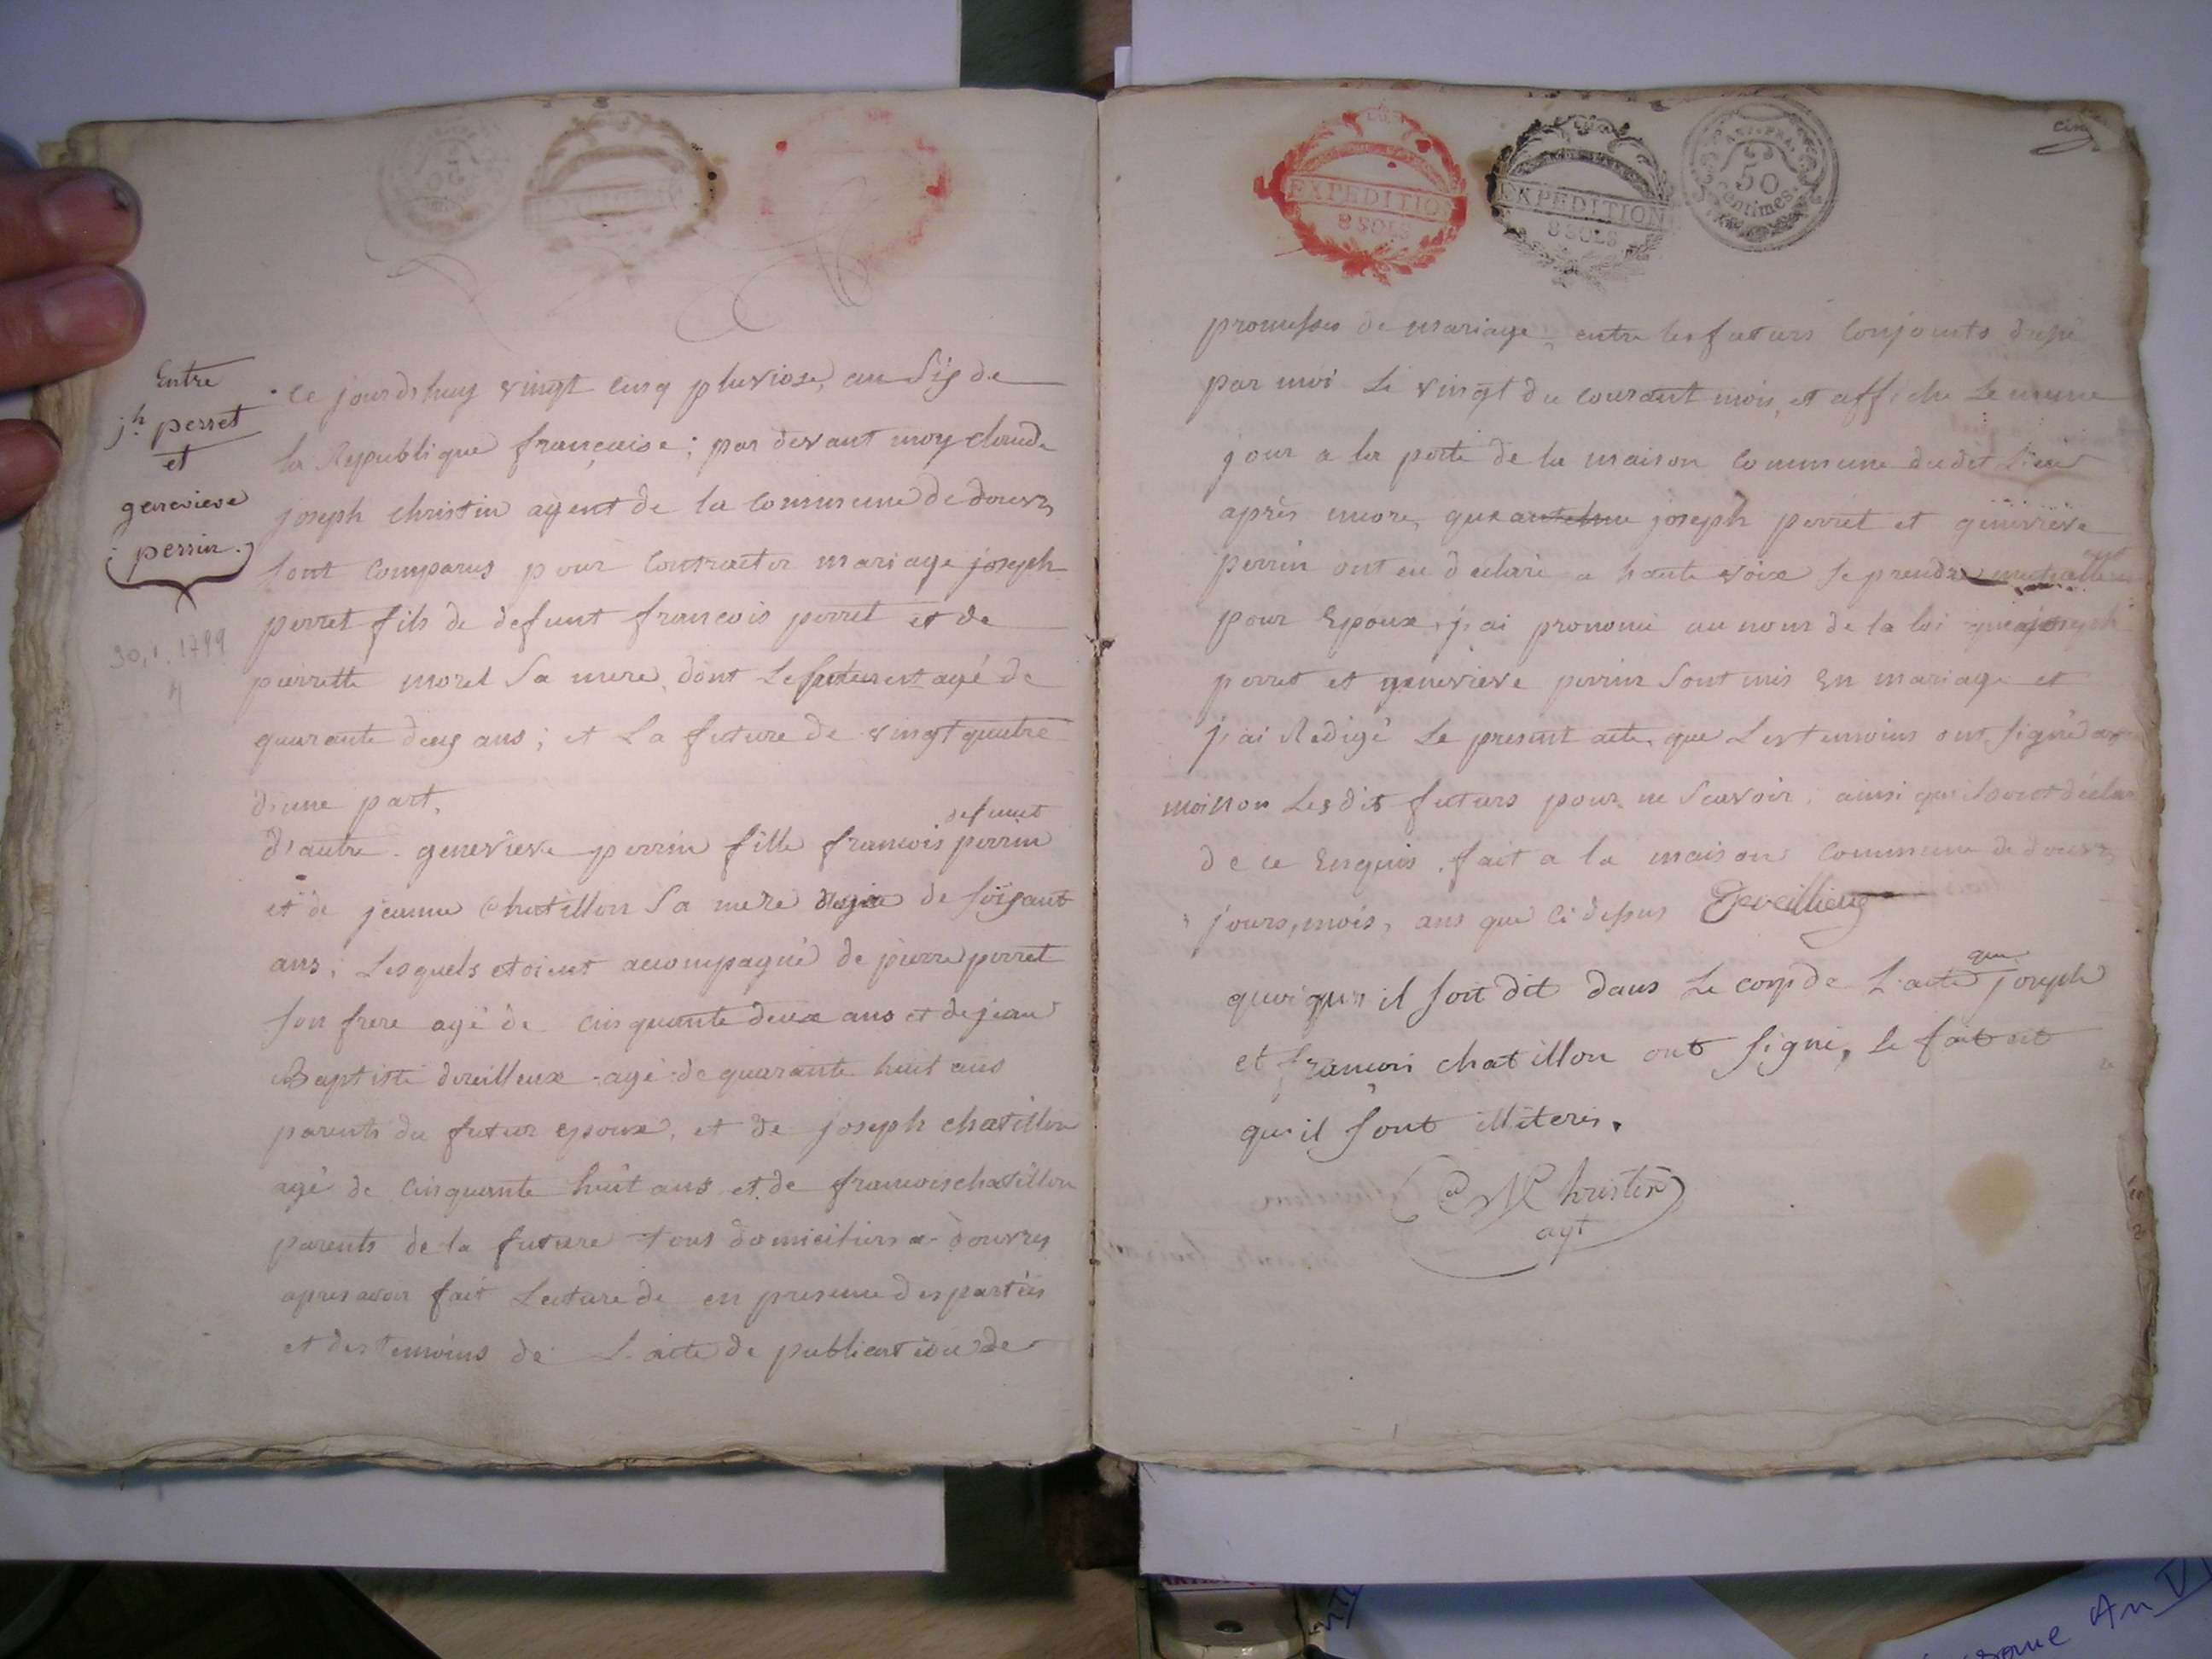 Entre
j.h perret
et
genevieve
perrin.
30.1.1799
Ce jourdhuy vingt cinq pluviose, an Six de
la Republique française; par devant moy claude
joseph christin agent de la commune de douvres
sont comparus pour Contracter mariage joseph
perret fils de defunt francois perret et de
pierrette morel Sa mere, dont Le futur est agé de
quarante deux ans; et La future de vingt quatre
d'une part,
defunct
d'autre genevieve perrin fille francois perrin
et de jeanne Chatillon Sa mere de soixant
ans; Lesquels etoient accompagné de pierre perret
son frere agé de cinquante deux ans et de jean
Baptiste dreillieux agé de quarante huit ans
parents du futur epoux, et de joseph chatillon
agé de cinquante huit ans et de francois chatillon
parents de la future tous domiciliers a douvres
apres avoir fait Lecture de en presence des parties
et des temoins de L'acte de publication de
cinq
EXPEDITION
8 SOLS
EXPEDITION
8 SOLS
50
Centimes
promesses de mariage entre les futurs Conjoints dressé
par moi Le vingt du courant mois, et affiché Le meme
jour a la porte de la maison Commune dudit Lieu
après encore, que joseph perret et genevieve
perrin ont eu declaré a haute voix se prendre mutuellem
pour Epoux, j'ai prononcé au nom de la loi que joseph
perret et genevieve perrin sont unis En mariage et
j'ai Redigé Le present acte que Les temoins ont signé avec
moi non Lesdits futurs pour ne Scavoir, ainsi qu'ils ont déclaré
de ce Enquis, fait a la maison Commune de douvres
jours, mois, ans que ci dessus Dreillieux
que
quoique il soit dit dans Le corp de L'acte joseph
et francois chatillon ont signé, Le fait est
qu'il sont illiterés.
Christin
agt
An VI